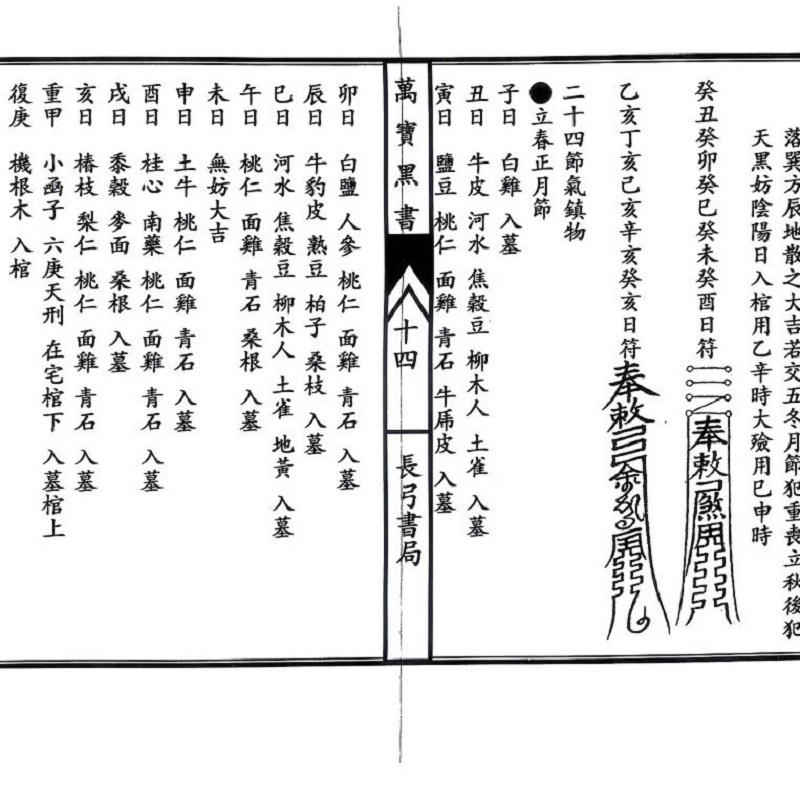 落巽方辰地散之大吉若交五冬月節犯重喪立秋後犯
天黑妨陰陽日入棺用乙辛時大殮用巳申時
癸丑癸卯癸巳癸未癸酉日符 奉敕煞
乙亥丁亥己亥辛亥癸亥日符 奉敕
二十四節氣鎮物
●立春正月節
子日 白雞 入墓
丑日 牛皮 河水 焦穀豆 柳木人 土雀 入墓
寅日 鹽豆 桃仁 面雞 青石 牛屌皮 入墓
萬寶黑書
十四
長弓書局
卯日 白鹽 人參 桃仁 面雞 青石 入墓
辰日 牛豹皮 熟豆 柏子 桑枝 入墓
巳日 河水 焦穀豆 柳木人 土雀 地黃 入墓
午日 桃仁 面雞 青石 桑根 入墓
未日 無妨大吉
申日 土牛 桃仁 面雞 青石 入墓
酉日 桂心 南藥 桃仁 面雞 青石 入墓
戌日 黍穀 麥面 桑根 入墓
亥日 椿枝 梨仁 桃仁 面雞 青石 入墓
重甲 小函子 六庚天刑 在宅棺下 入墓棺上
復庚 機根木 入棺